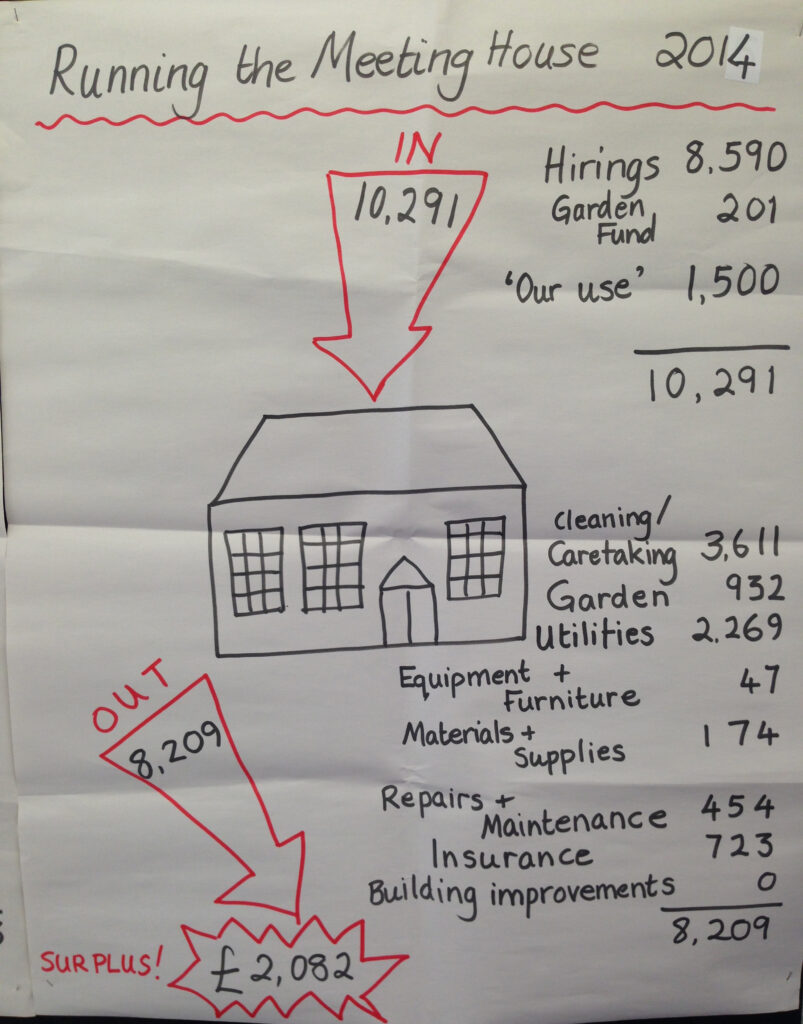 Running the Meeting House 2014
IN
10,291
Hirings 8,590
Garden 201
Fund
'Our use' 1,500
10,291
Cleaning/
Caretaking 3,611
Garden 932
Utilities 2,269
Equipment + 47
Furniture
Materials + 174
Supplies
Repairs + 454
Maintenance
Insurance 723
Building improvements 0
8,209
OUT
8,209
SURPLUS! £2,082